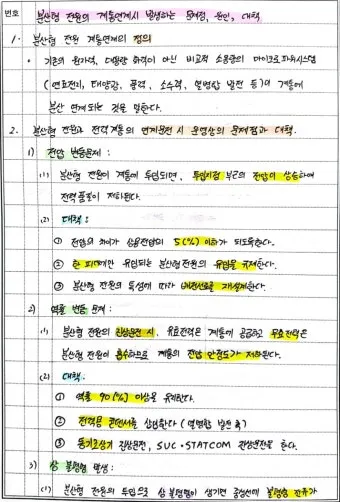 번호
분산형 전원의 계통연계시 발생하는 문제점, 원인, 대책
1. 분산형 전원 계통연계의 정의
• 기존의 원자력, 대용량 화력이 아닌 비교적 소용량의
(연료전지, 태양광, 풍력, 소수력, 열병합 발전 등)이 계통에
분산 연계되는 것을 말한다.
2. 분산형 전원과 전력계통의 연계운전 시 운영상의 문제점과 대책.
1) 전압 변동문제 :
(1) 분산형 전원이 계통에 투입되면, 투입지점 부근의 전압이 상승하여
전력품질이 저하된다.
(2) 대책 :
① 전압의 차이가 상용전압의 5(%) 이하가 되도록한다.
② 한 피더에만 유입되는 분산형전원의 유입을 규제한다.
③ 분산형 전원의 특성에 따라 배전선로를 재설계한다.
2) 역률 변동 문제 :
(1) 분산형 전원의 진상운전 시, 유효전력은 계통에 공급하고 무효전력은
분산형 전원이 흡수하므로 계통의 전압 안정도가 저하된다.
(2) 대책 :
① 역률 90(%) 이상을 유지한다.
② 전력용 콘덴서를 삽입한다 (열병합 발전 측)
③ 동기조상기 진상운전, SVC · STATCOM 진상운전을 한다.
3) 상 불평형 발생 :
(1) 분산형 전원의 투입으로 상 불평형이 생기면 중성선에 불평형 전류가